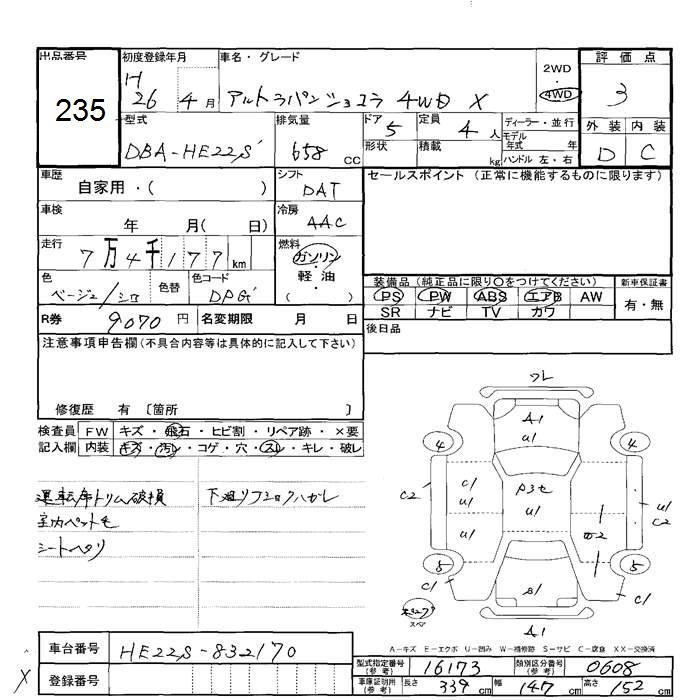 出品番号
235
初度登録年月
H
26 4月
車名・グレード
アルトラパンショコラ 4WD X
2WD
・
4WD
評価点
3
外装 内装
D C
型式
DBA-HE22S
排気量
658 CC
ドア
5
形状
定員
4人
積載
kg
ディーラー・並行
モデル
年式 年
ハンドル 左・右
車歴
自家用・( )
シフト
DAT
セールスポイント (正常に機能するものに限ります)
車検
年 月( 日)
冷房
AAC
走行
7万4千177km
燃料
ガソリン
・
軽・油
( )
色
ベージュ/シロ
色替
色コード
DPG
装備品 (純正品に限り○をつけてください)
PS PW ABS エアB AW
SR ナビ TV カワ
新車保証書
有・無
R券
9070円
名変期限 月 日
後日品
注意事項申告欄(不具合内容等は具体的に記入して下さい)
修復歴 有 〔箇所 〕
検査員
記入欄
FW キズ・飛石・ヒビ割・リペア跡・×要
内装 キズ・汚レ・コゲ・穴・スレ・キレ・破レ
運転席トリム破損
下廻リフロックハガレ
室内ペット毛
シートヘタリ
ワレ
A1
U1
4
4
C2
C1
U1
U1
P3セ
U1
U1
C2
5
5
C1
C1
スペア
A1
A-キズ E-エクボ U-凹み W-補修跡 S-サビ C-腐食 XX-交換済
車台番号
HE22S-832170
登録番号
X
型式指定番号
(参考)
16173
類別区分番号
(参考)
0608
車庫証明用
(参考)
長さ 339cm
幅 147cm
高さ 152cm